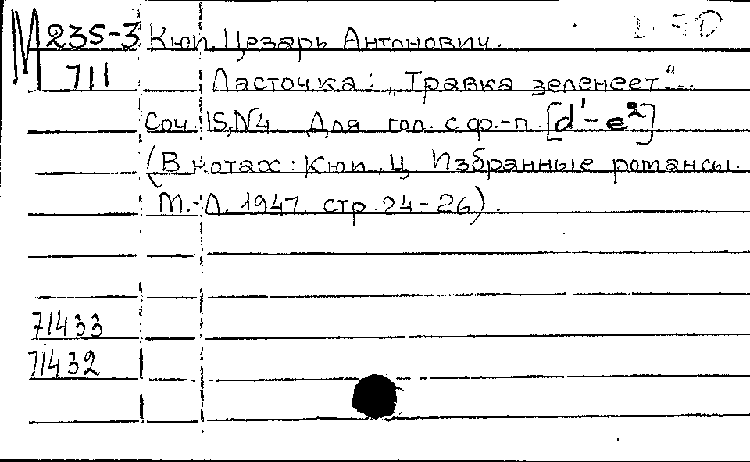 М 235-3 Кюи, Цезарь Антонович.
711 Ласточка: „Травка зеленеет“...
Соч. 15, №4 Для гол. с ф.-п. [d¹-e²]
(В нотах: Кюи, Ц. Избранные романсы.
М.-Л. 1947. стр. 24-26).
71433
71432